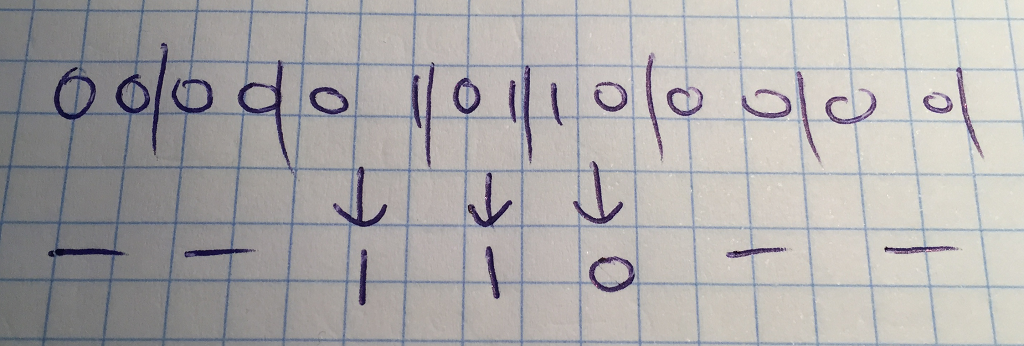 00|00|01|01|10|00|00|
↓ ↓ ↓
— — 1 1 0 — —